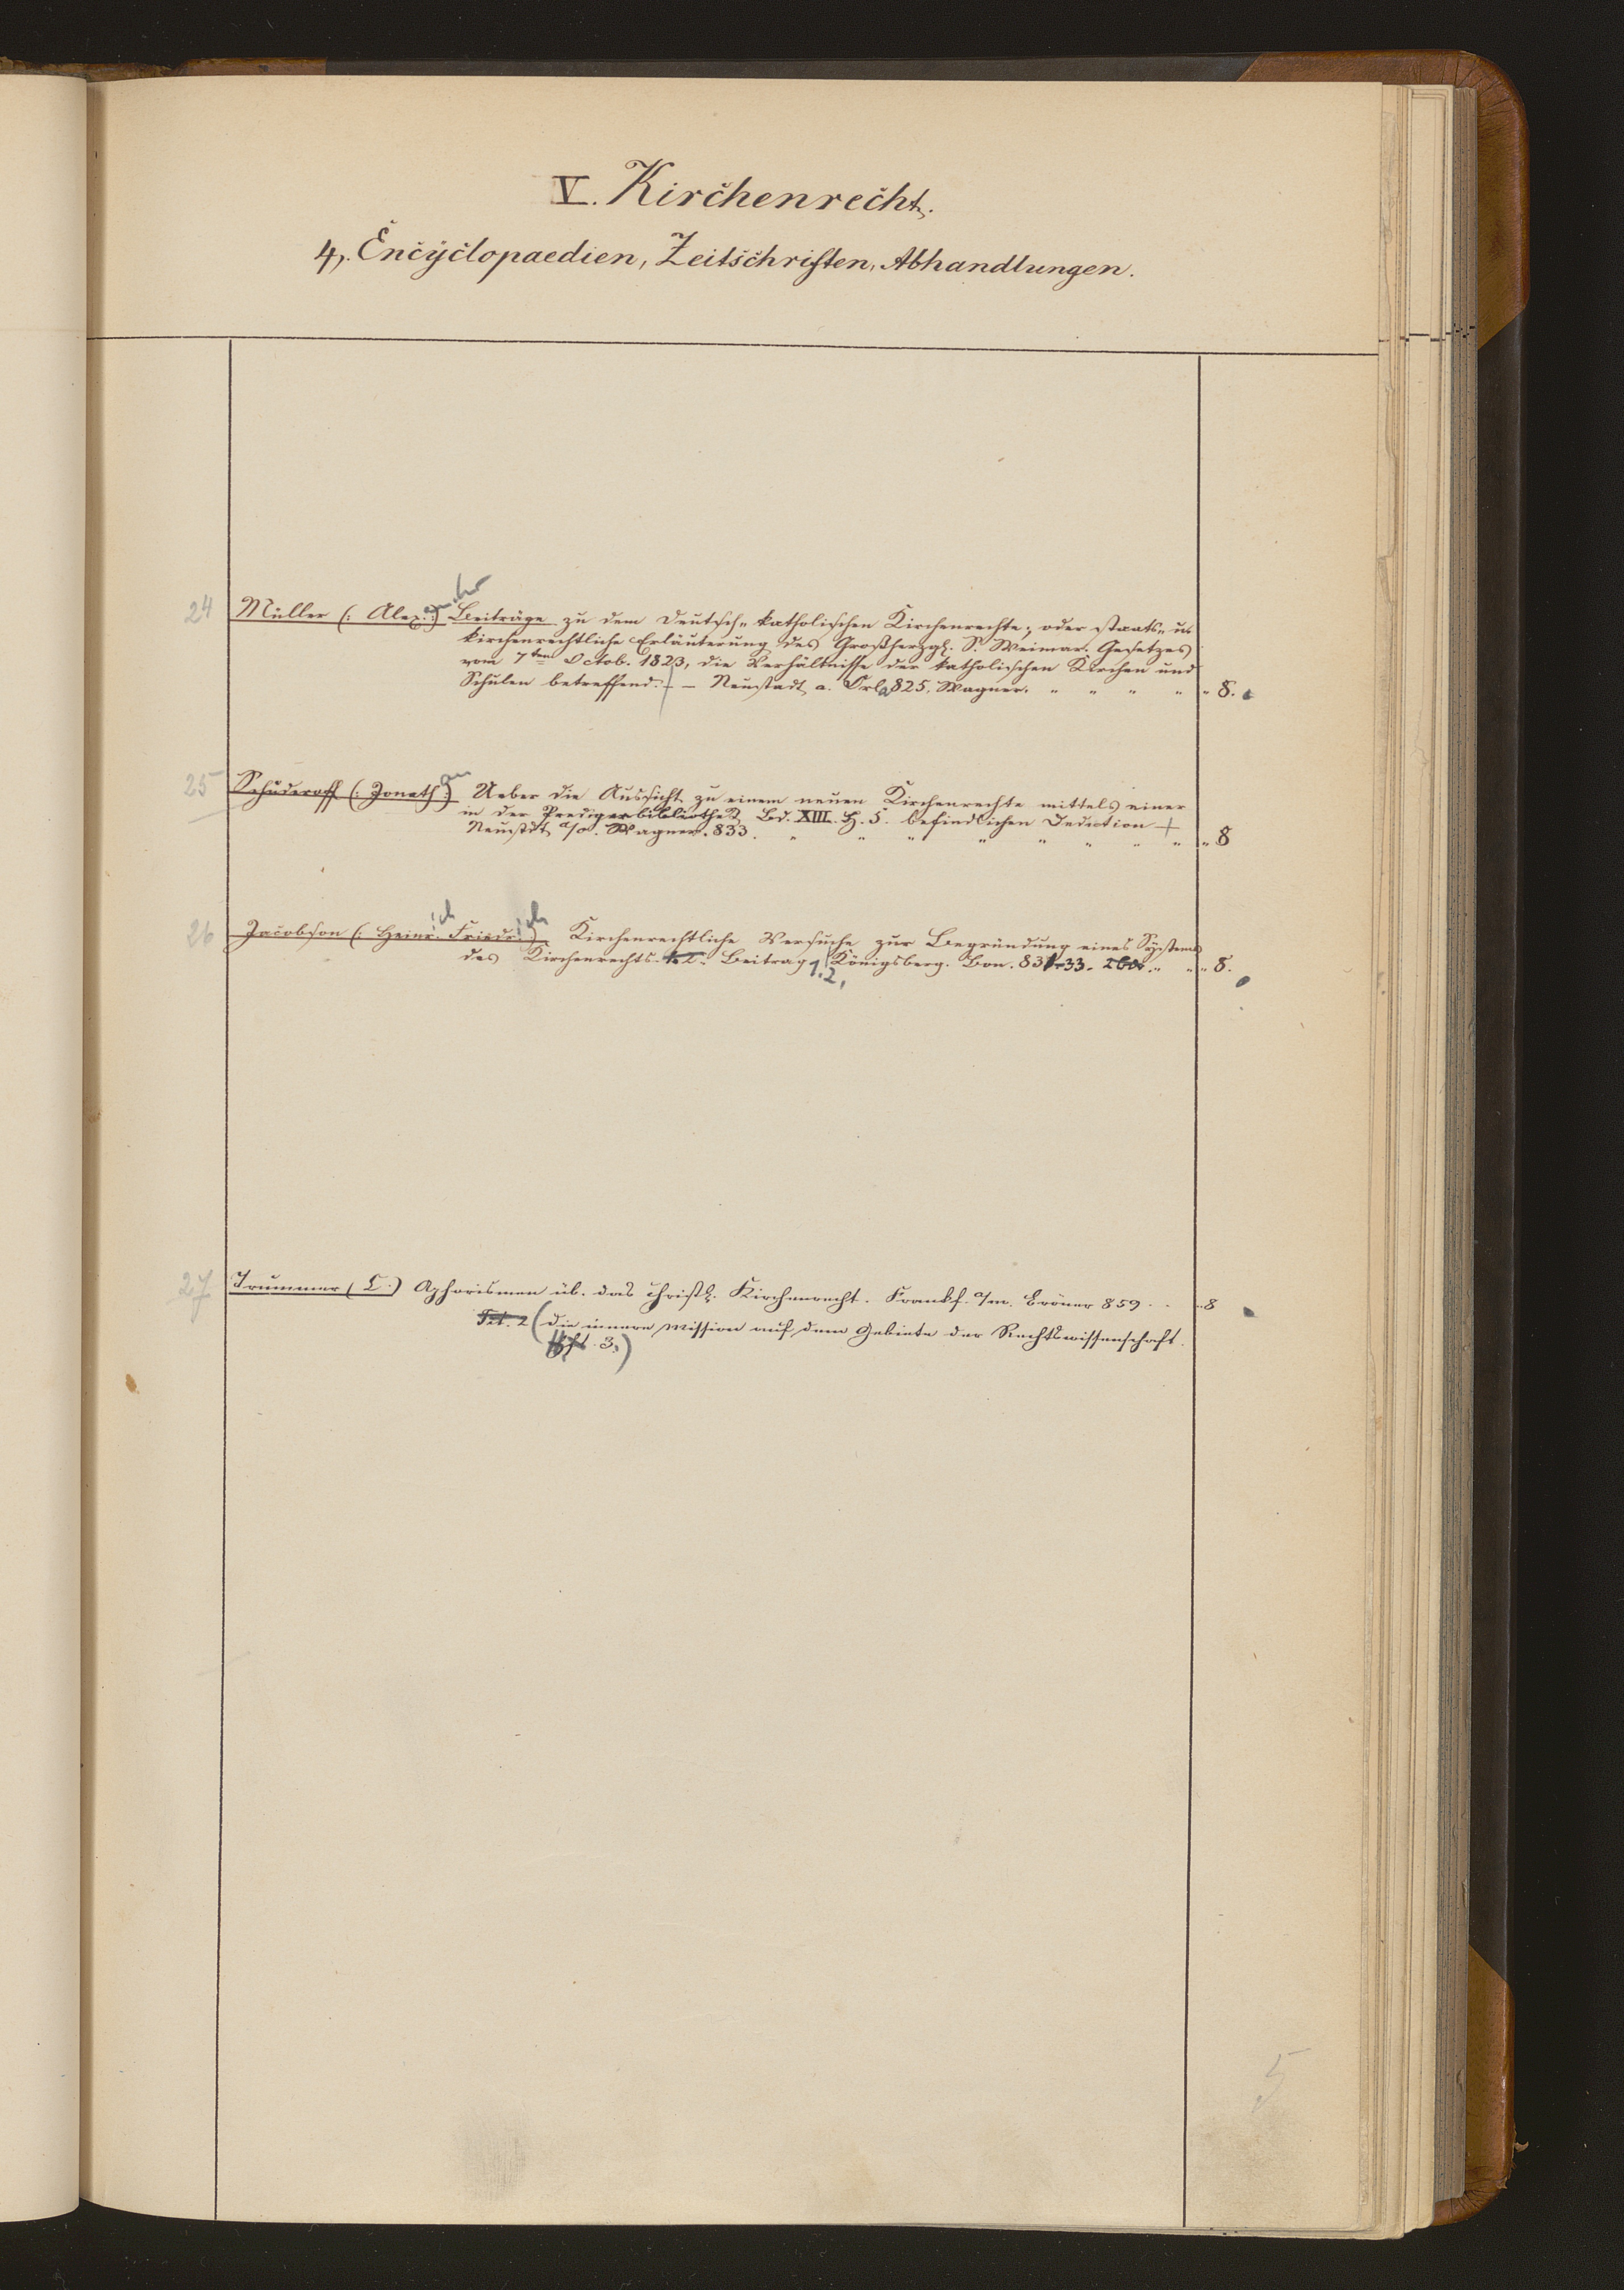 V. Kirchenrecht.
4, Encyclopaedien, Zeitschriften, Abhandlungen.
24 Müller (: Alex:) ander Beiträge zu dem deutsch-katholischen Kirchenrechte; oder staats- u.
kirchenrechtliche Erläuterung des Großherzgl. S. Weimar. Gesetzes
vom 7ten Octob. 1823, die Verhältnisse der katholischen Kirchen und
Schulen betreffend. — Neustadt a. Orla 825. Wagner. " " " " " 8.
25 Schuderoff (: Jonath:) an Ueber die Aussicht zu einem neuen Kirchenrechte mittels einer
in der Predigerbibliothek Bd. XIII. H. 5. befindlichen Induction +
Neustadt a/O. Wagner. 833. " " " " " " " " " 8
26 Jacobson (: Heinr. ich Friedr:) ich Kirchenrechtliche Versuche zur Begründung eines Systems
des Kirchenrechts. 1. 2. Beitrag 1. 2, Königsberg. Bon. 831-33. " " " 8.
27 Trummer (C.) Aphorismen üb. das christl. Kirchenrecht. Frankf. a/m. Bröner 859 . . " 8
Tit. 2 (die innere Mission auf dem Gebiete der Rechtswissenschaft.
Hft 3.)
5